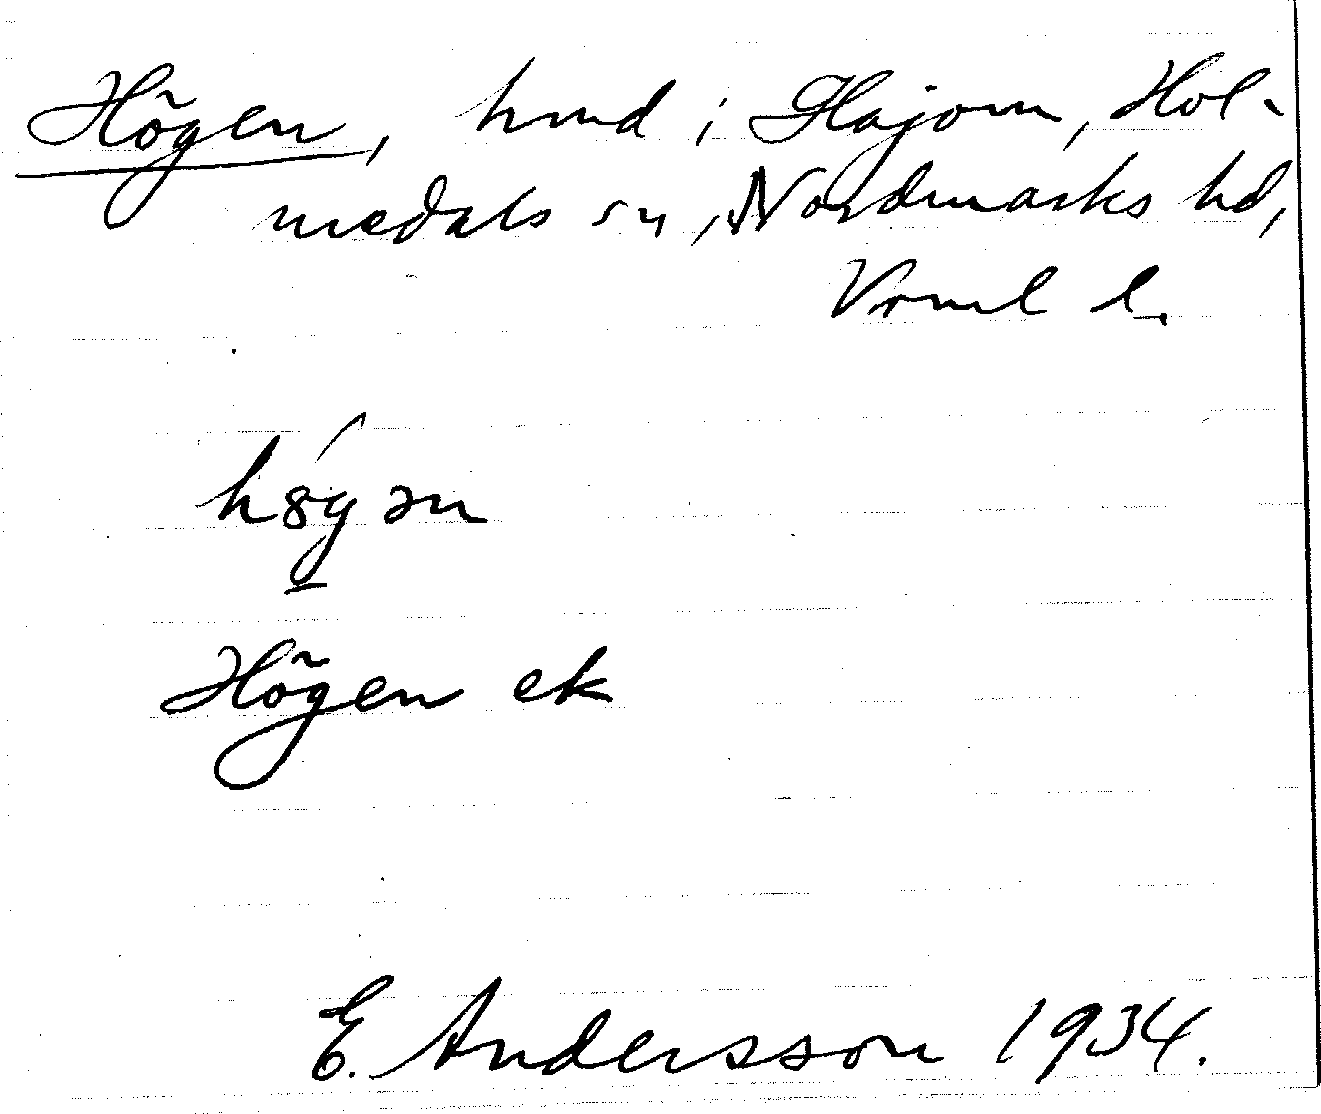 Högen, hmd i Häjom, Hol-
medals sn, Nordmarks hd,
Vrml l.
Högen ek
E. Andersson 1934.